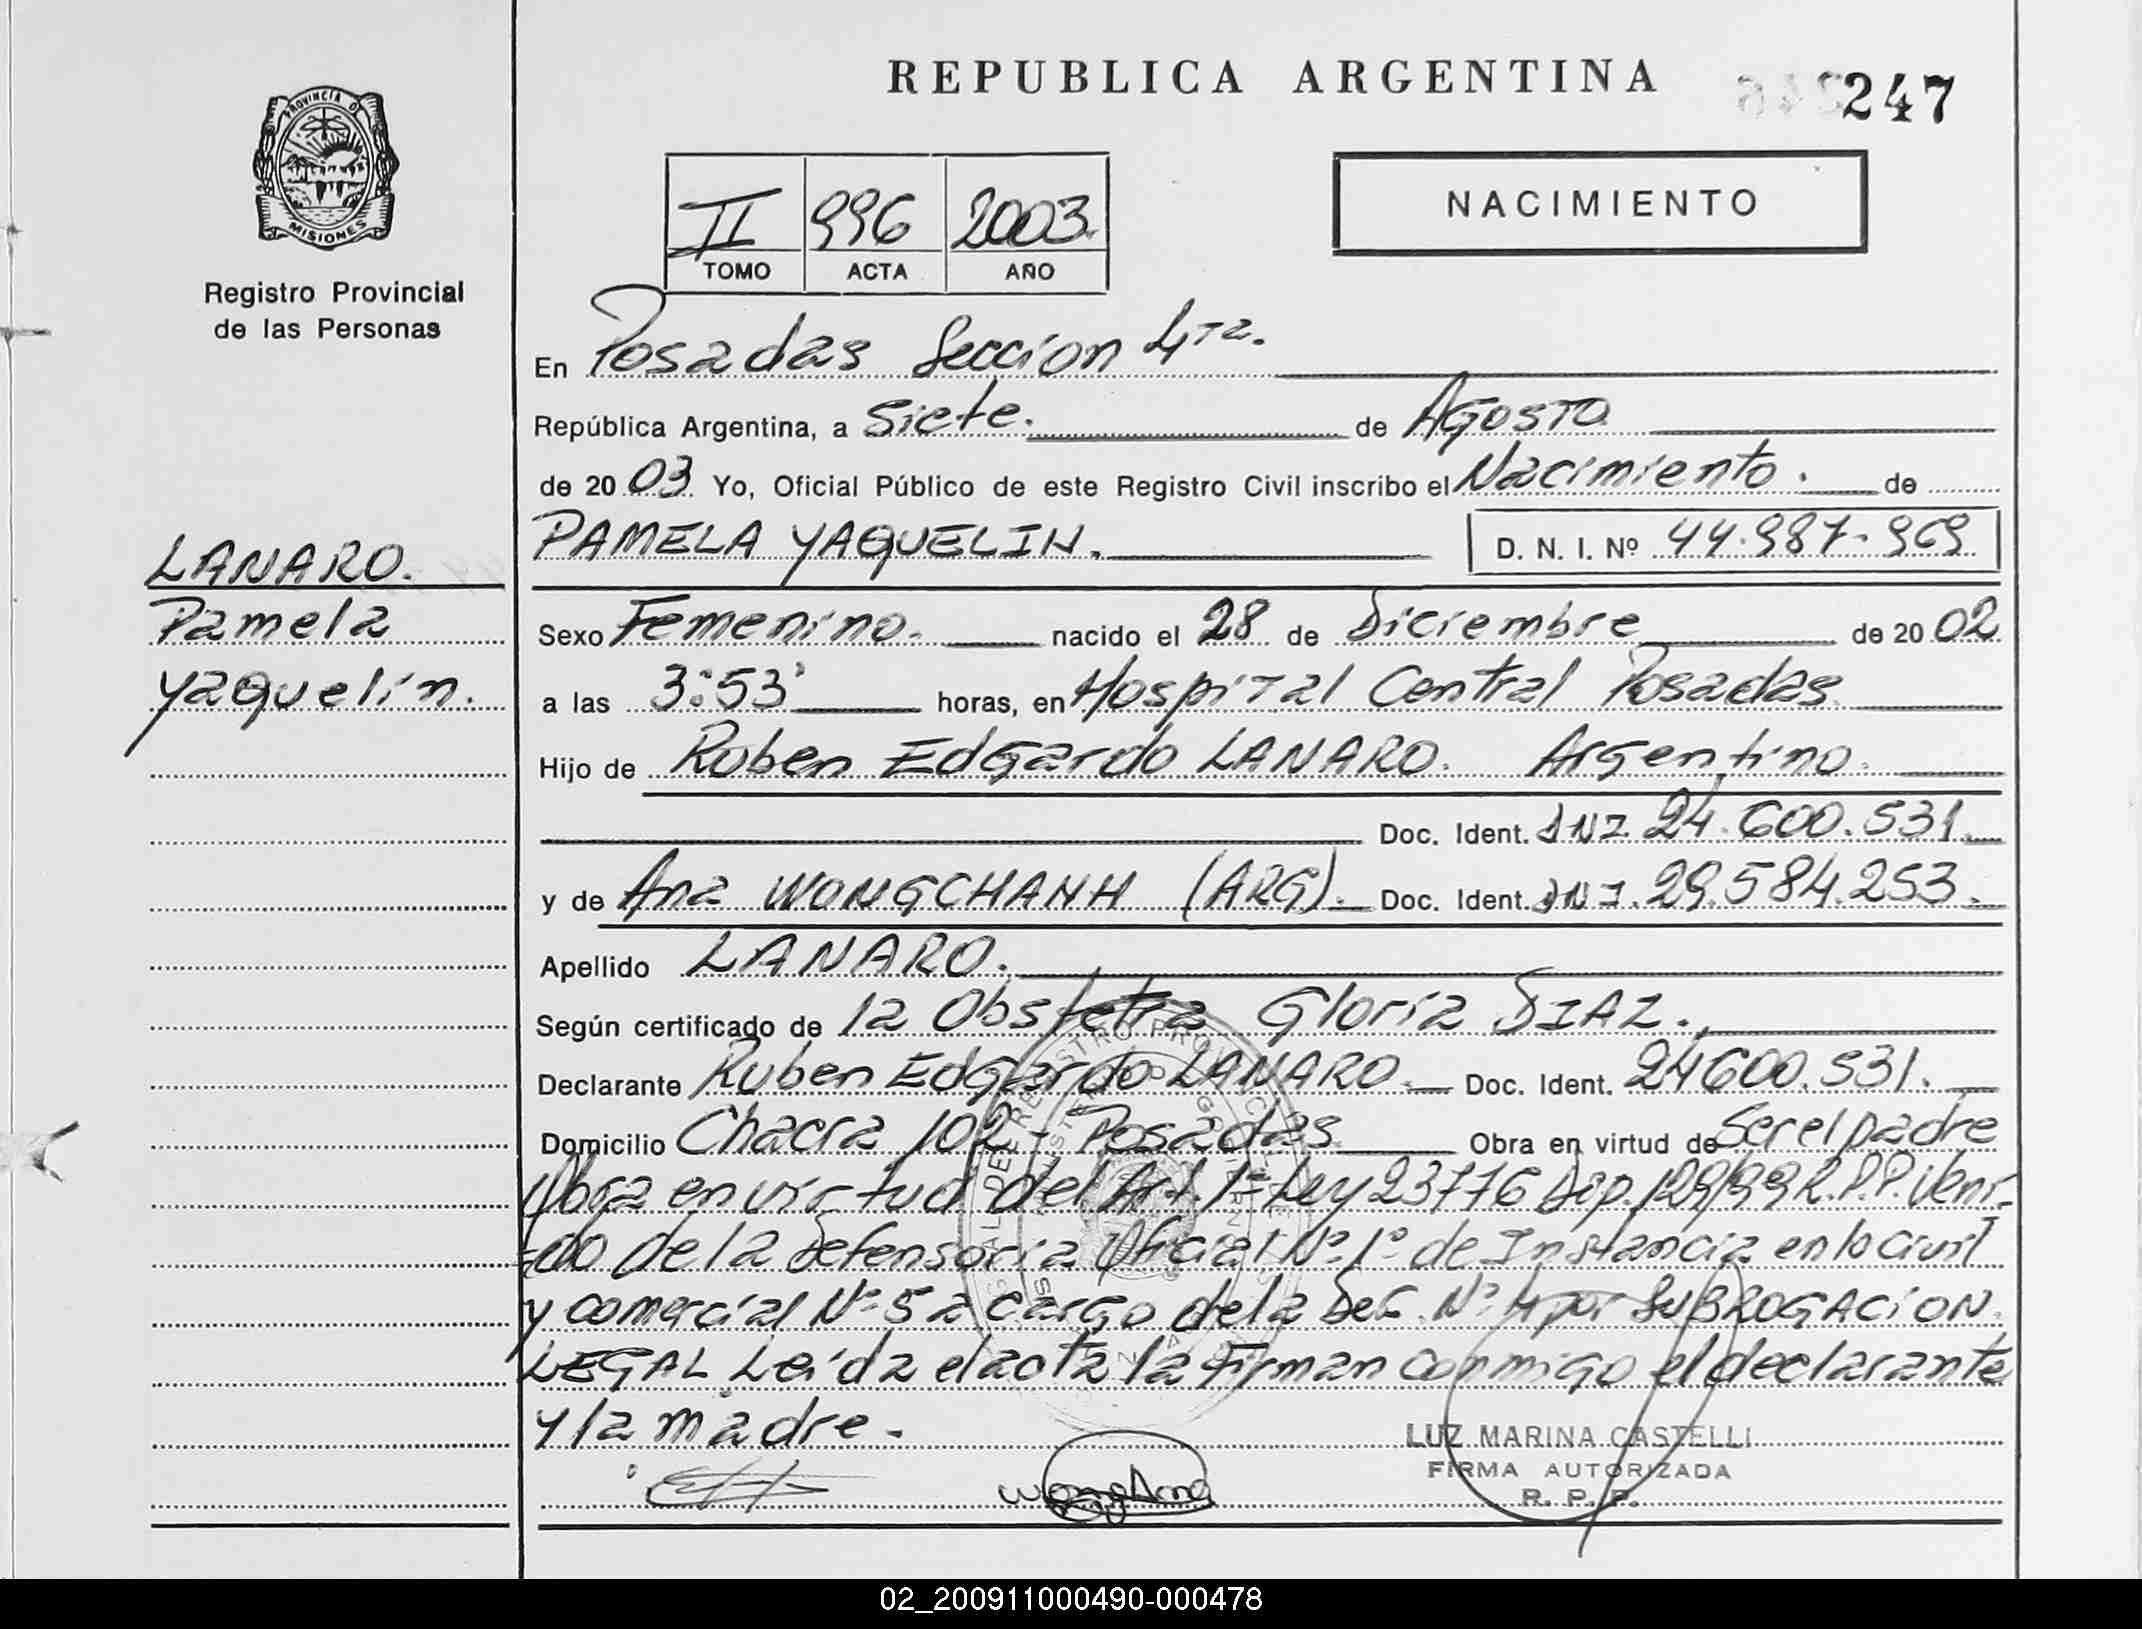 REPUBLICA ARGENTINA
247
PROVINCIA DE
MISIONES
Registro Provincial
de las Personas
II 996 2003.
TOMO ACTA AÑO
NACIMIENTO
En Posadas Seccion 4ta.
República Argentina, a Siete. de Agosto
de 20 03 Yo, Oficial Público de este Registro Civil inscribo el Nacimiento. de
PAMELA YAQUELIN. D. N. I. Nº 44.987.969
LANARO.
Pamela
Yaquelin.
Sexo Femenino. nacido el 28 de Diciembre de 20 02
a las 3:53' horas, en Hospital Central Posadas
Hijo de Ruben Edgardo LANARO. Argentino.
Doc. Ident. DNI 24.600.531.
y de Ana WONGCHANH (ARG). Doc. Ident. DNI. 29.584.253.
Apellido LANARO.
Según certificado de la Obstetra Gloria DIAZ.
Declarante Ruben Edgardo LANARO. Doc. Ident. 24600.531.
Domicilio Chacra 102 - Posadas Obra en virtud de Ser el padre
Obra en virtud del Art. 1º Ley 23776 Disp. 129/99 R.P.P. Veni-
do de la Defensoria Oficial Nº 1º de Instancia en lo Civil
y comercial Nº 5 a cargo de la Def. Nº 4 por SUBROGACION
LEGAL Leida el acta la Firman conmigo el declarante
y la madre.-
Wong Ana
LUZ MARINA CASTELLI
FIRMA AUTORIZADA
R. P. P.
02_200911000490-000478